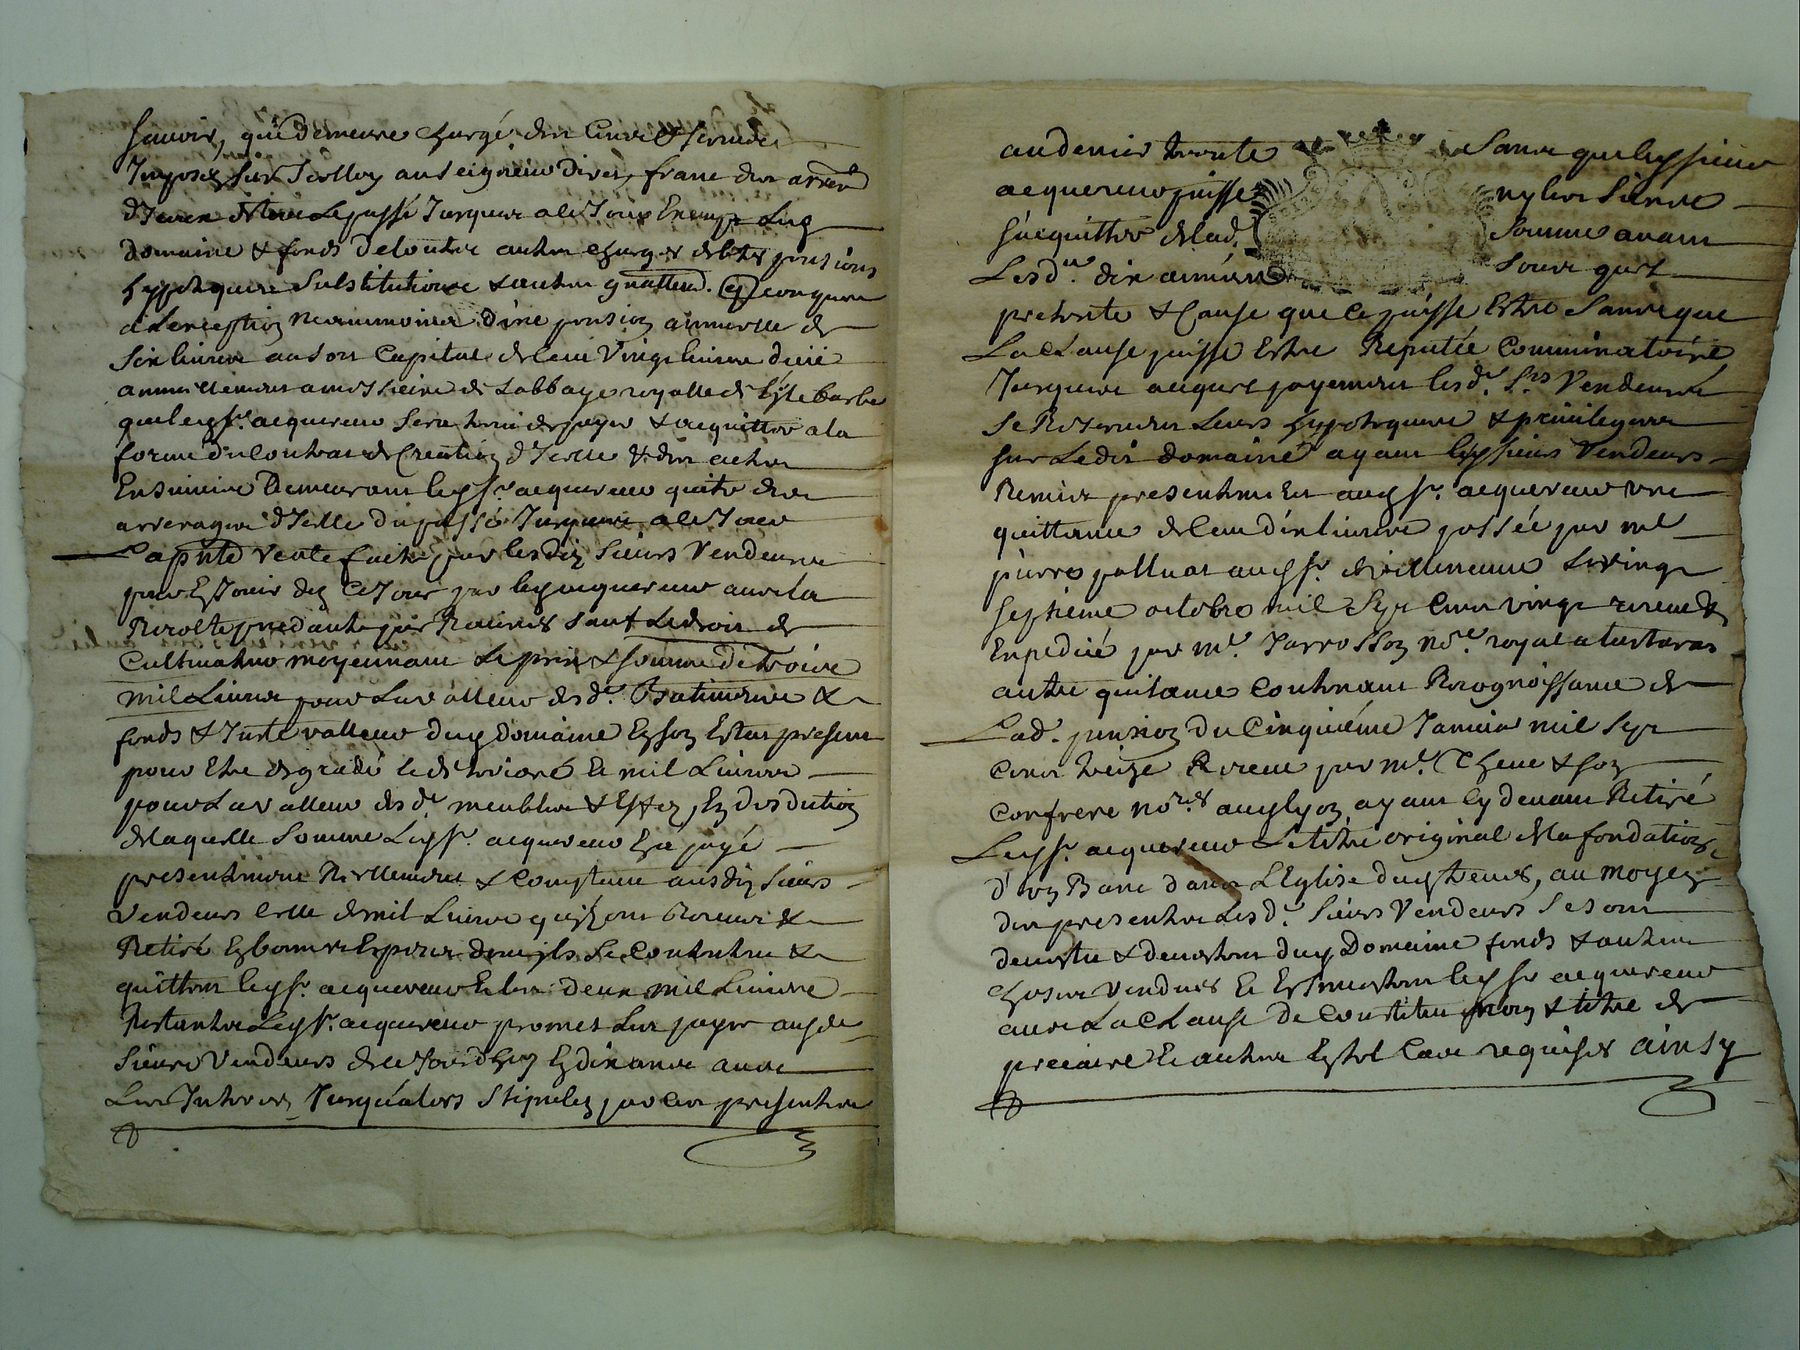 Sçavoir, qui demeure chargé des Cens & servis
Imposés sur Icelluy au Seigneur Direct, franc des arrer.
d'Iceux de tout Le passé Jusques a ce Jour En cinq Lug
domaine & fonds de toutte autres charges debtes pensions
hyppoteques Substitutions & autres gnallem. quelconques
a L'exception neanmoins d'une pension annuelle de
Six livres au sort Capital de Cent Vingt livres deüe
annuellement a messieurs de L'abbaye royalle de L'isle barbe
que led. Sr. acquereur sera tenu de payer & acquitter a la
forme du Contrat de Creation d'Icelle & des autres
Ensuivis Demeurant led. Sr. acquereur quitte des
arrerages d'Icelle du passé Jusques a ce Jour
La pnte vente faite par lesdits Sieurs Vendeurs
pour En Jouir dez Ce Jour par led. acquereur avec la
Recolte pendante par Racines Sauf Le droit de
Cultivateur moyennant Le prix & somme de trois
mil Livres pour La valleur desd. Batimens &
fonds & Juste valleur dud. domaine En son Estat present
pour Etre degradé & deterioré Et mil Livres
pour La valleur desd. meubles & Effets, En deduction
de laquelle Somme Led. Sr. acquereur En a payé
presentement Reellement & Comptant ausdits Sieurs
Vendeurs Celle de mil Livres qu'ils ont Receue &
Retiré En bonnes Especes dont ils Se Contentent &
quittent led. Sr. acquereur Et les deux mil Livres
Restantes Led. Sr. acquereur promet Les payer ausd.
Sieurs Vendeurs de ce Jourd'huy En dix années avec
Les Interets Jusqu'alors Stipulez par Ces presentes
au denier trente Sans que led. sieur
acquereur puisse ny les Sieurs
S'acquitter de lad. Somme avant
Lesd. dix années Sous quel
pretexte & Cause que Ce puisse Estre Sans que
La Clause puisse Estre Reputée Comminatoire
Jusques auquel payement lesd. Srs Vendeurs
Se Reservent Leurs hypoteques & privileges
Sur Ledit domaine ayant lesd. sieurs Vendeurs
Remis presentement aud. Sr. acquereur une
quittance de Cent dix livres passée par me
pierre palluat aud. Sr. de vilneuve Le vingt
Septième octobre mil Sept Cens vingt neuf &
Expedié par me. Jarrosson no.re royal a tartaras
autre quitance Contenant Recognoissance de
Lad. pension du Cinquiéme Janvier mil Sept
Cens treize Receue par me. Theve & son
Confrere no.res aud. Lyon ayant Cy devant Retiré
Led. Sr. acquereur Le titre original de la fondation
d'un Banc dans L'Eglise dud. tenes, au moyen
des presentes Lesd. Sieurs Vendeurs Se sont
devestu & devestent dud. Domaine fonds & autres
choses Vendues Et En Investent led. Sr. acquereur
avec La Clause de Constitution & titre de
precaire Et autres En tel Cas requises ainsy